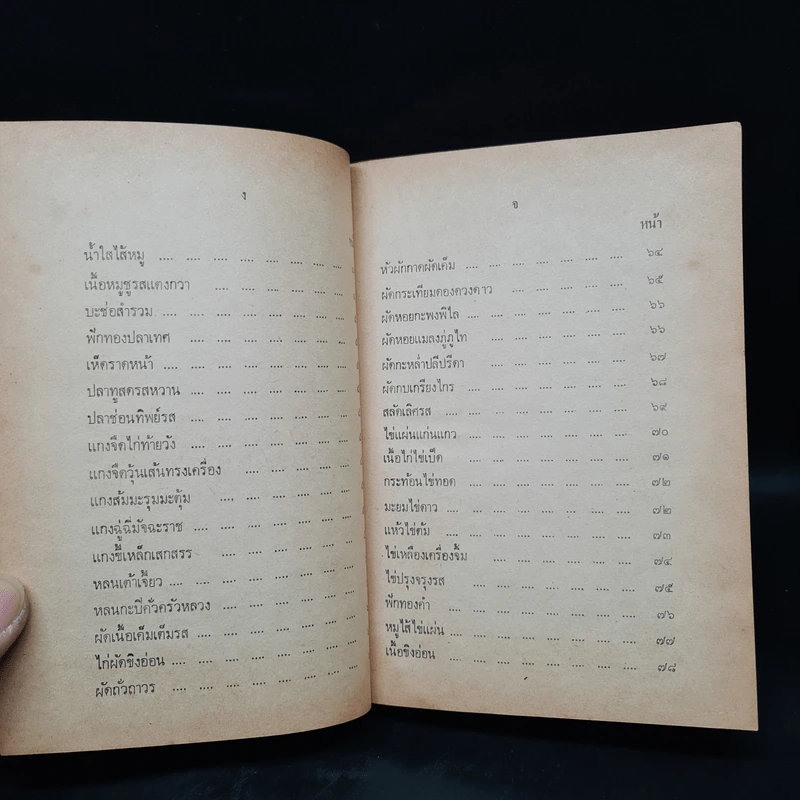 ง
น้ำใสไส้หมู .... .... .... .... .... .... .... ....
เนื้อหมูชูรสแตงกวา .... .... .... .... .... ....
บะช่อสำรวม .... .... .... .... .... .... .... ....
ฟักทองปลาเทศ .... .... .... .... .... .... ....
เห็ดราดหน้า .... .... .... .... .... .... .... ....
ปลาทูสดรสหวาน .... .... .... .... .... .... ....
ปลาช่อนทิพย์รส .... .... .... .... .... .... ....
แกงจืดไก่ท้ายวัง .... .... .... .... .... .... ....
แกงจืดวุ้นเส้นทรงเครื่อง .... .... .... .... ....
แกงส้มมะรุมมะตุ้ม .... .... .... .... .... ....
แกงฉู่ฉี่มัจฉะราช .... .... .... .... .... ....
แกงขี้เหล็กเสกสรร .... .... .... .... .... ....
หลนเต้าเจี้ยว .... .... .... .... .... .... ....
หลนกะปิคั่วครัวหลวง .... .... .... .... ....
ผัดเนื้อเค็มเต็มรส .... .... .... .... .... ....
ไก่ผัดขิงอ่อน .... .... .... .... .... .... ....
ผัดถั่วถาวร .... .... .... .... .... .... ....
จ
หน้า
หัวผักกาดผัดเค็ม .... .... .... .... .... .... .... ๖๔
ผัดกระเทียมดองดวงดาว .... .... .... .... .... ๖๕
ผัดหอยกะพงพิไล .... .... .... .... .... .... .... ๖๖
ผัดหอยแมลงภู่ภูไท .... .... .... .... .... .... ๖๖
ผัดกะหล่ำปลีปรีดา .... .... .... .... .... .... ๖๗
ผัดกบเกรียงไกร .... .... .... .... .... .... .... ๖๘
สลัดเลิศรส .... .... .... .... .... .... .... .... ๖๙
ไข่แผ่นแก่นแกว .... .... .... .... .... .... .... ๗๐
เนื้อไก่ไข่เป็ด .... .... .... .... .... .... .... ๗๑
กระท้อนไข่ทอด .... .... .... .... .... .... .... ๗๒
มะยมไข่ดาว .... .... .... .... .... .... .... ๗๒
แห้วไข่ต้ม .... .... .... .... .... .... .... ๗๓
ไข่เหลืองเครื่องจิ้ม .... .... .... .... .... .... ๗๔
ไข่ปรุงจรุงรส .... .... .... .... .... .... .... ๗๕
ฟักทองคำ .... .... .... .... .... .... .... ๗๖
หมูไส้ไข่แผ่น .... .... .... .... .... .... .... ๗๗
เนื้อขิงอ่อน .... .... .... .... .... .... .... ๗๘